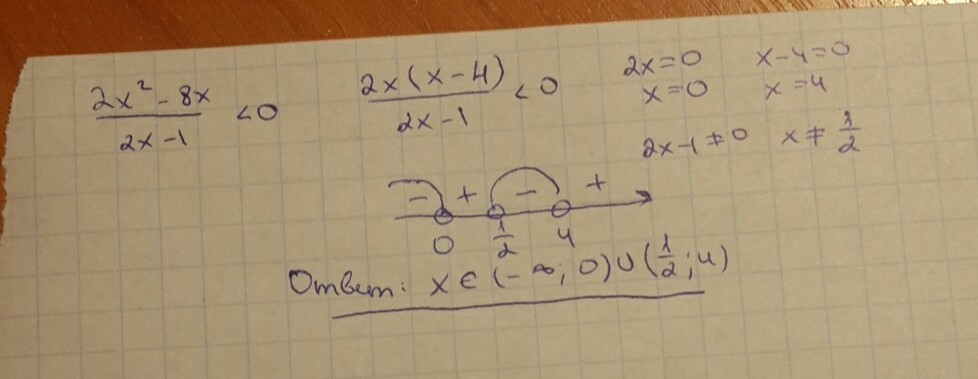 (2x² - 8x)/(2x - 1) < 0
(2x(x - 4))/(2x - 1) < 0
2x = 0   x - 4 = 0
x = 0   x = 4
2x - 1 ≠ 0   x ≠ 1/2
- + - +
0 1/2 4
Ответ: x ∈ (-∞; 0) ∪ (1/2; 4)